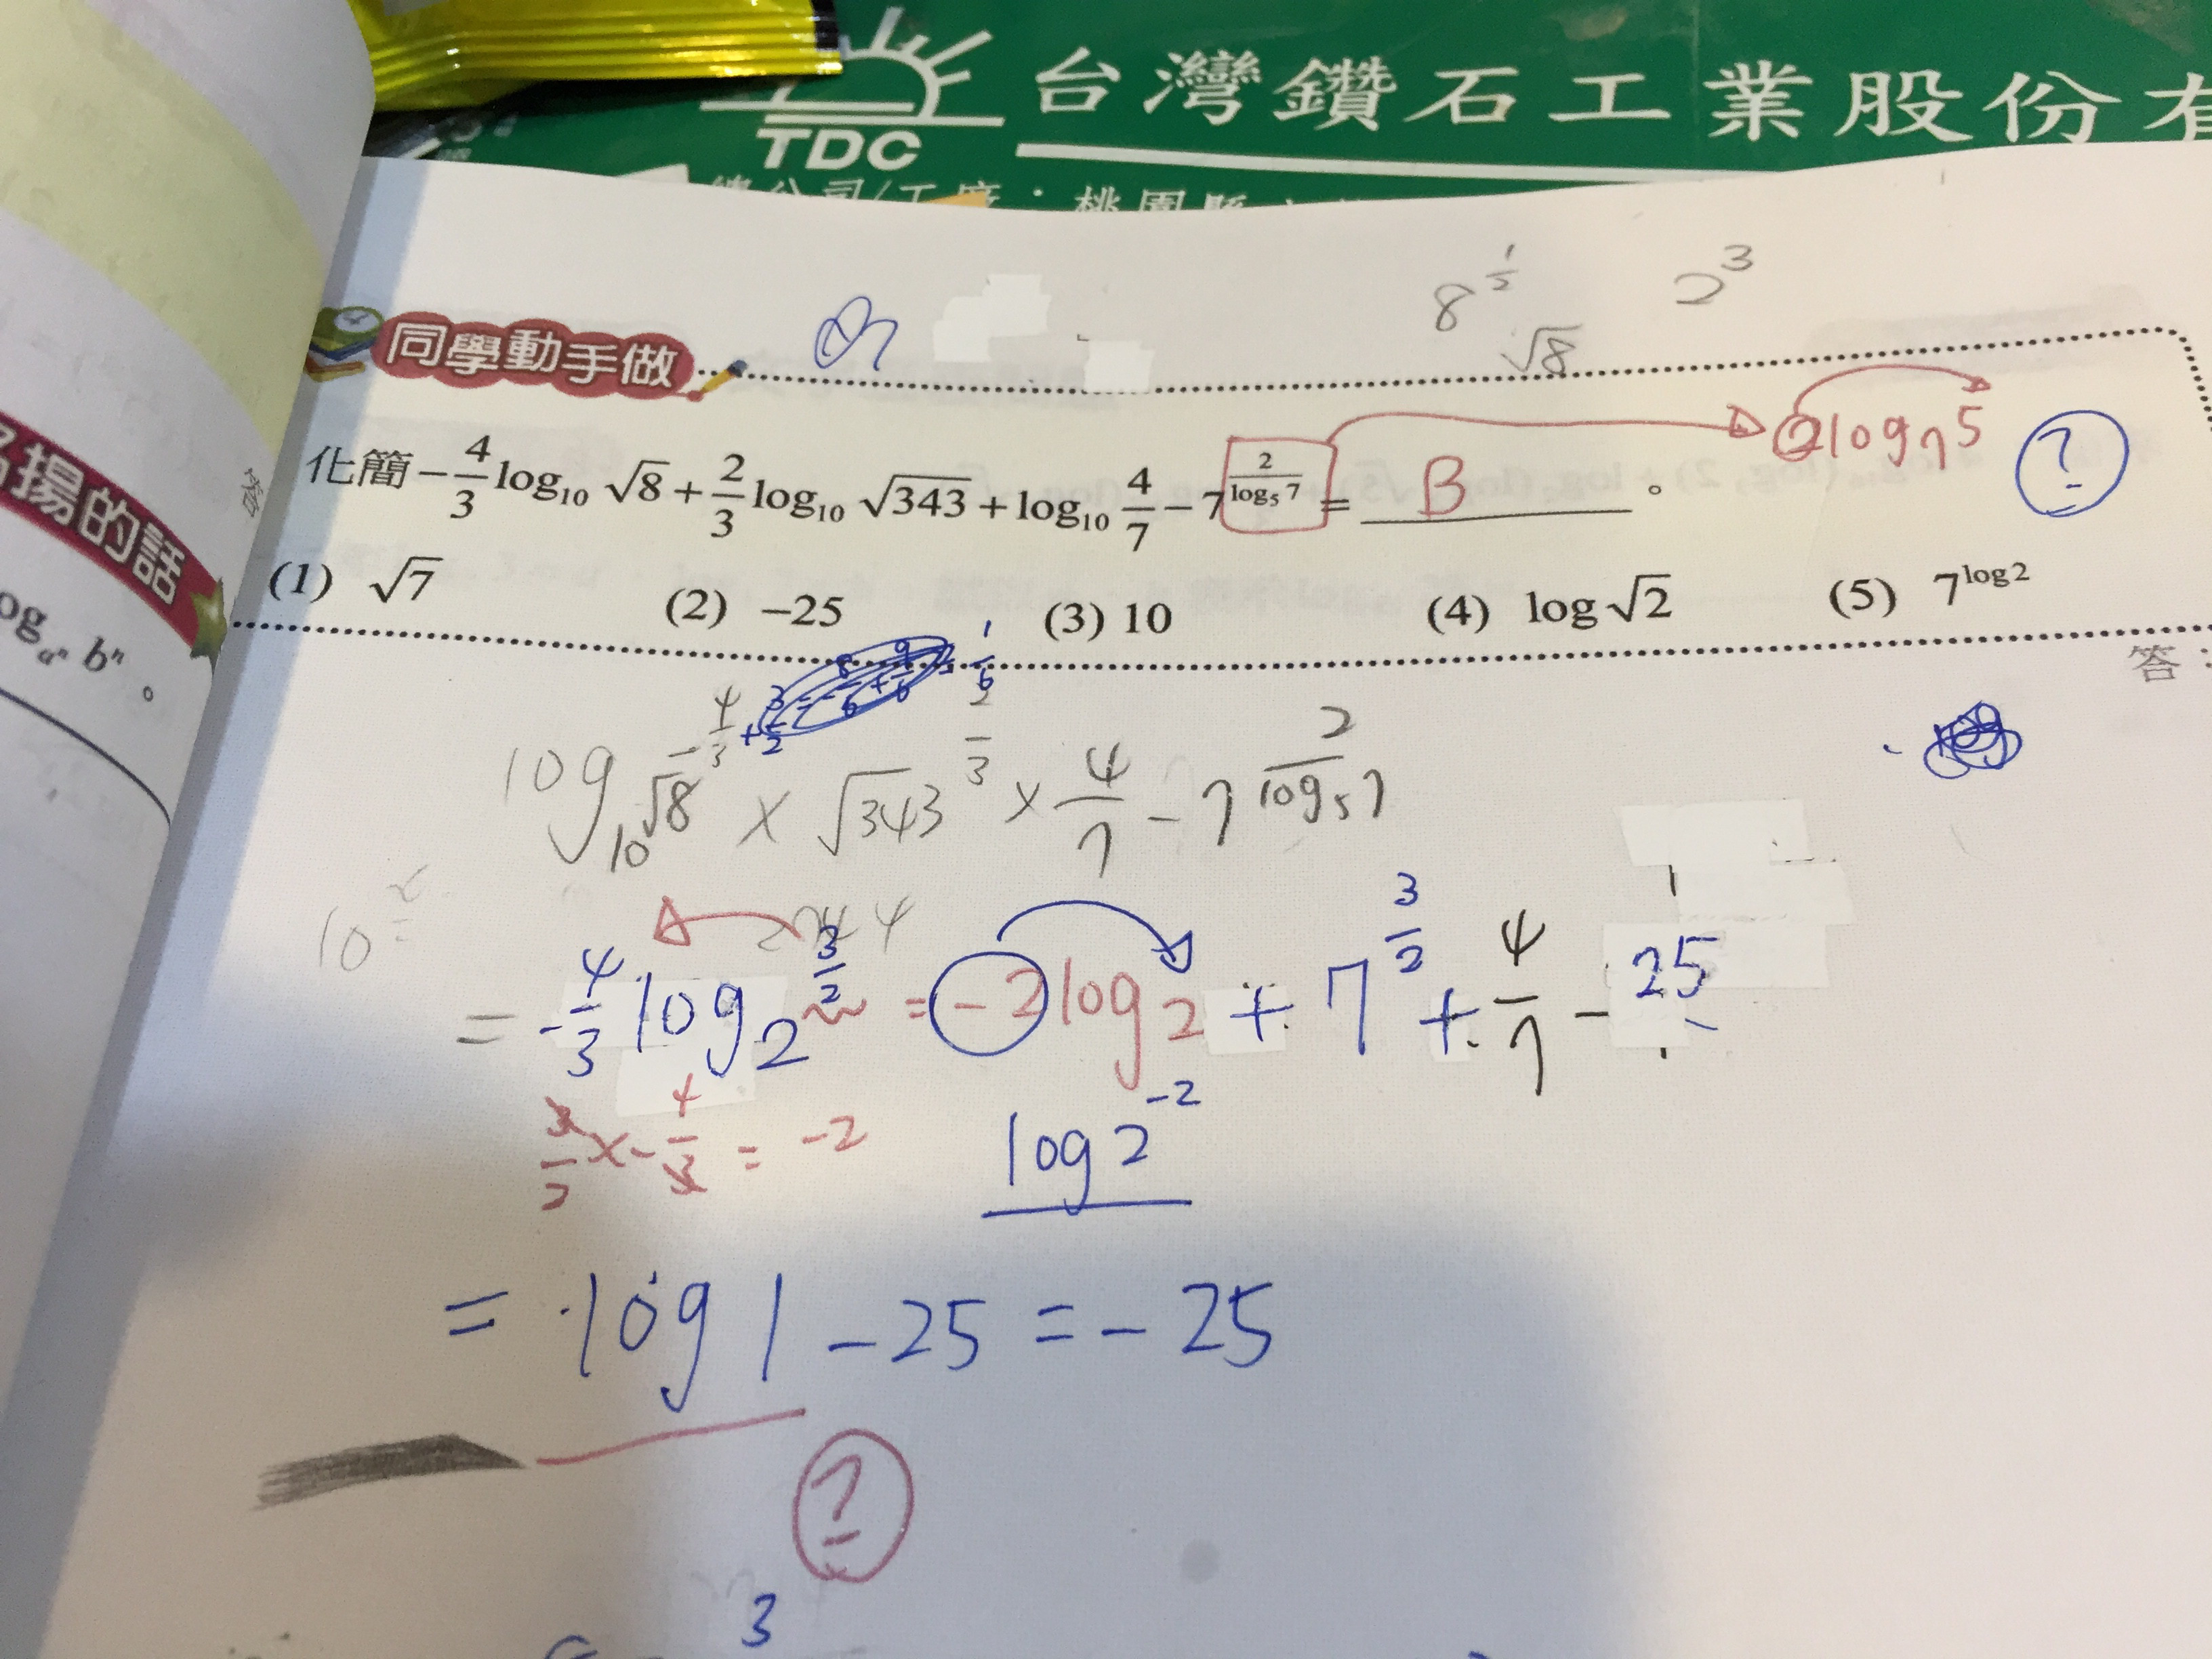 台灣鑽石工業股份有
TDC
總公司/工廠：桃園縣
8^{\frac{1}{2}} 2^3
√8
同學動手做
揚的話
2log_7 5
?
化簡 -\frac{4}{3}log_{10} √8 + \frac{2}{3}log_{10} √343 + log_{10} \frac{4}{7} - 7^{\frac{2}{log_5 7}} = B 。
(1) √7 (2) -25 (3) 10 (4) log√2 (5) 7^{log2}
og_{a^n} b^n 。
答：
log_{10} √8^{-\frac{4}{3}} × √343^{\frac{2}{3}} × \frac{4}{7} - 7^{\frac{2}{log_5 7}}
= -\frac{4}{3} log 2^{\frac{3}{2}} = -2 log 2 + 7^{\frac{3}{2}} + \frac{4}{7} - 25
\frac{3}{2} × -\frac{4}{3} = -2
log 2^{-2}
= log 1 - 25 = -25
?
3